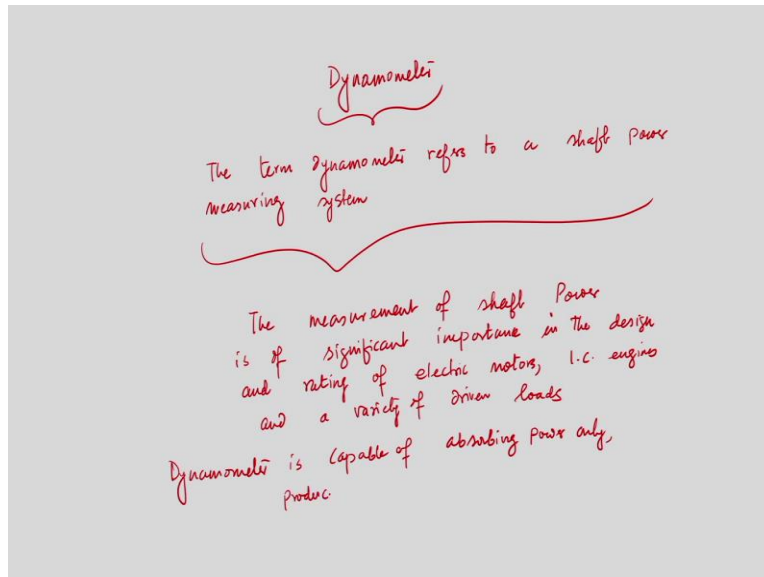 Dynamometer
The term dynamometer refers to a shaft power
measuring system
The measurement of shaft Power
is of significant importance in the design
and rating of electric motors, I.C. engines
and a variety of driven loads
Dynamometer is capable of absorbing power only,
produc.